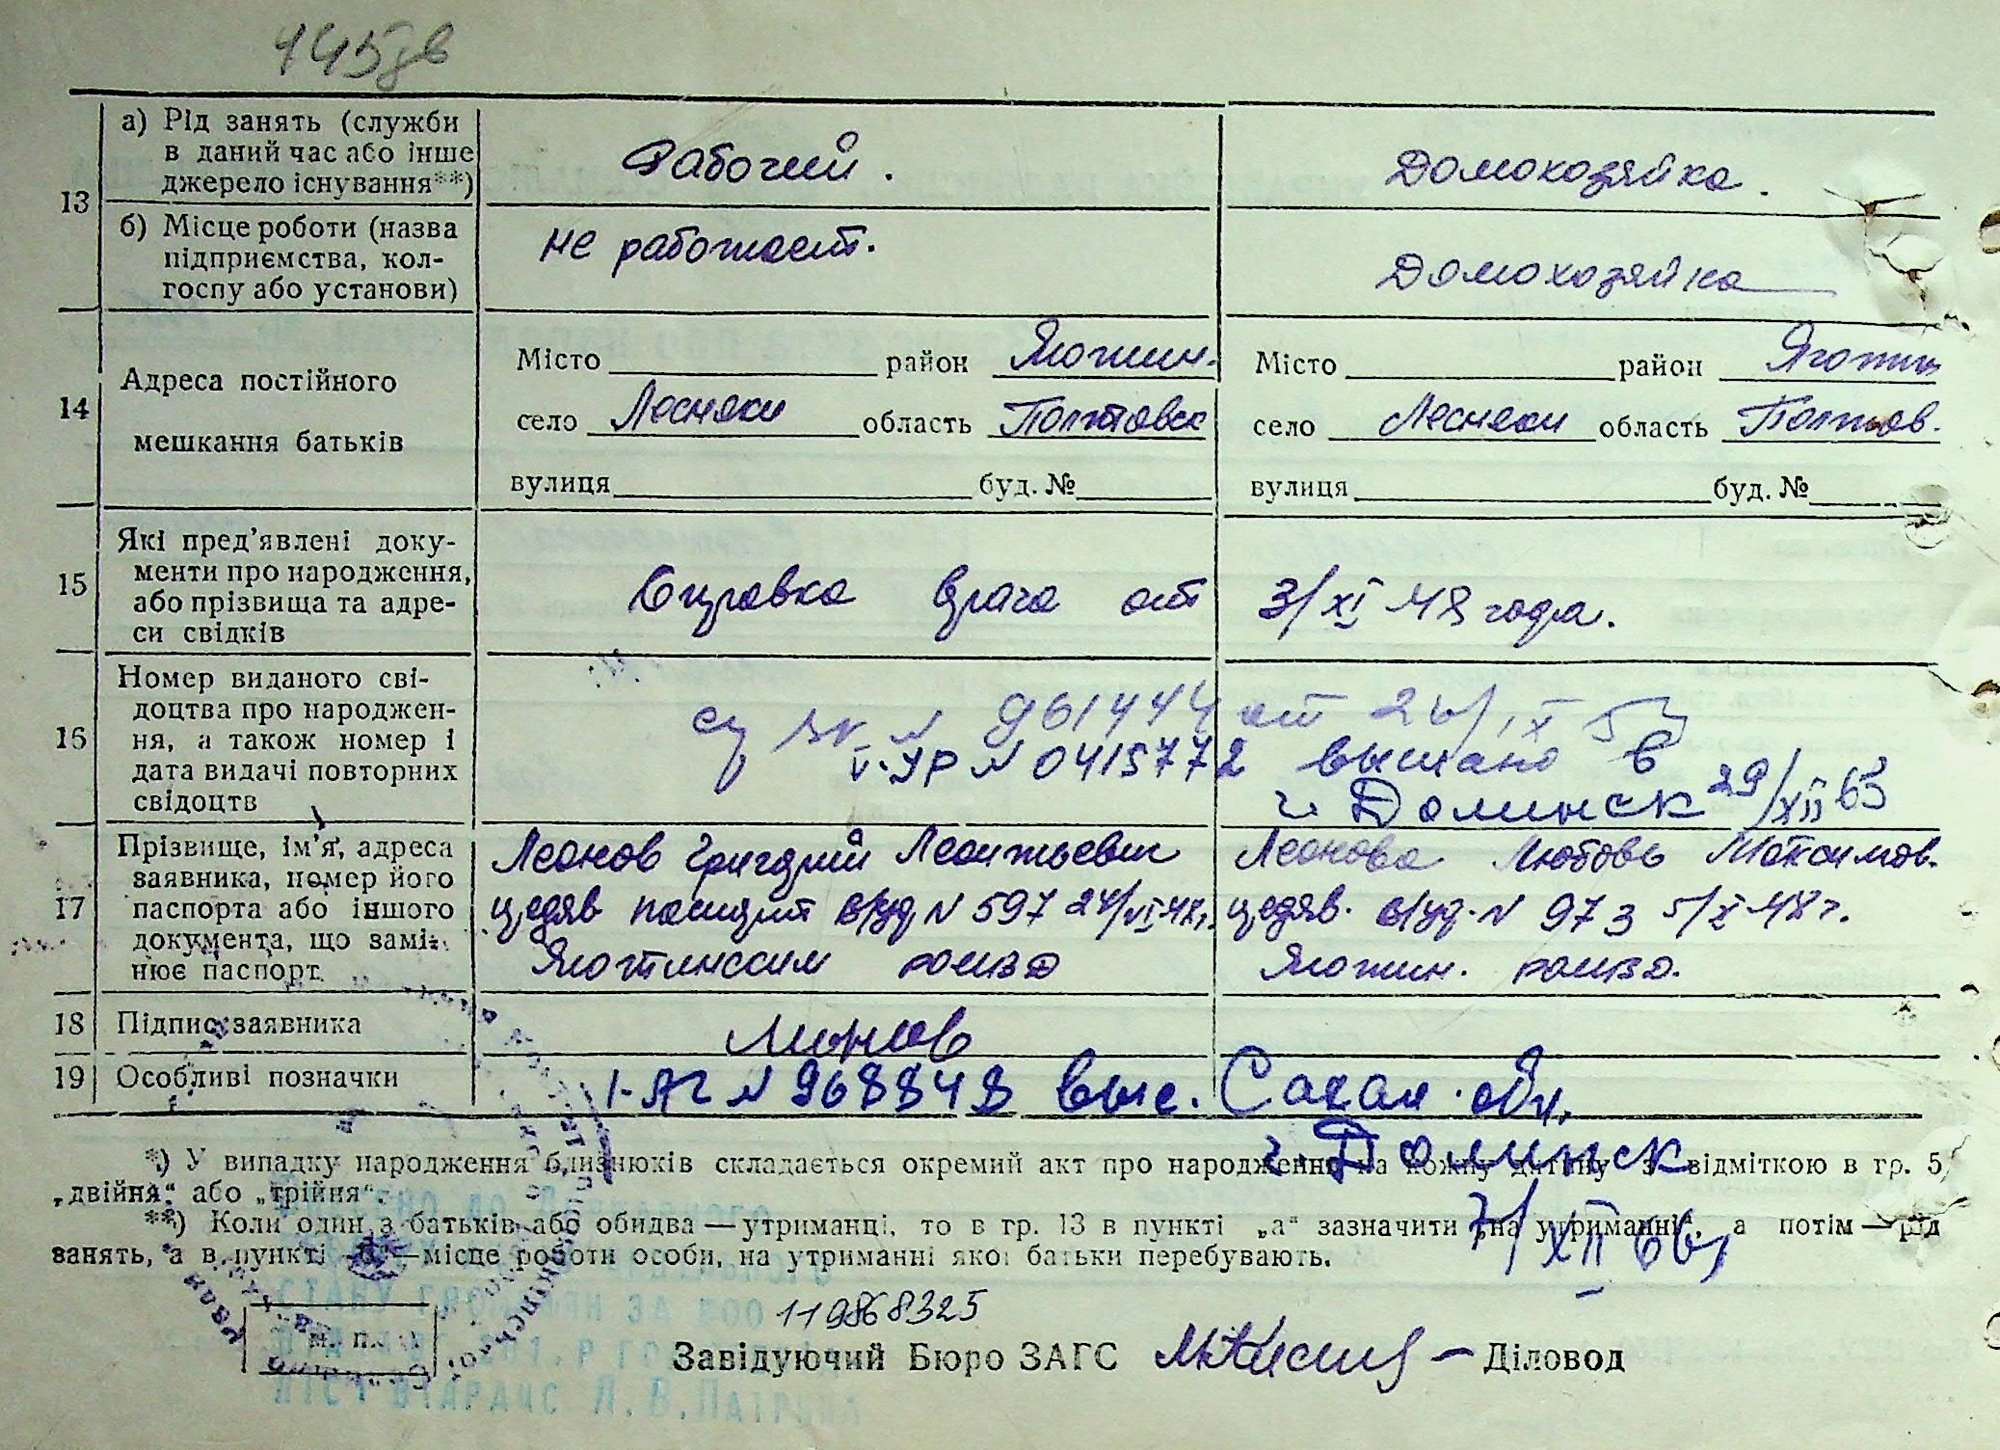 145дв
13
а) Рід занять (служби
в даний час або інше
джерело існування**)
Рабочий.
Домохозяйка.
б) Місце роботи (назва
підприємства, кол-
госпу або установи)
не работает.
Домохозяйка
14
Адреса постійного
мешкання батьків
Місто район Яготин.
село Лесняки область Полтавск
вулиця буд. №
Місто район Яготин
село Лесняки область Полтав.
вулиця буд. №
15
Які пред’явлені доку-
менти про народження,
або прізвища та адре-
си свідків
Справка врача от 3/XI-48 года.
16
Номер виданого сві-
доцтва про народжен-
ня, а також номер і
дата видачі повторних
свідоцтв
№ 961444 от
V-УР № 0415772 выслано в
г. Долинск 29/XII 63
17
Прізвище, ім’я, адреса
заявника, номер його
паспорта або іншого
документа, що замі-
нює паспорт.
Леонов Григорий Леонтьевич
предяв паспорт в/уд № 597 24/VI-48г.
Яготинским РОМВД
Леонова Любовь Максимов.
предяв. в/уд. № 973 5/X-48г.
Яготин. РОМВД.
18
Підпис заявника
Леонов
19
Особливі позначки
I-АГ № 968848 выс. Сахал. обл.
г. Долинск
7/XII 66г
*) У випадку народження близнюків складається окремий акт про народження на кожну дитину з відміткою в гр. 5
„двійня“ або „трійня“.
**) Коли один з батьків або обидва — утриманці, то в гр. 13 в пункті „а“ зазначити „на утриманні“, а потім — рід
занять, а в пункті — місце роботи особи, на утриманні якої батьки перебувають.
119868325
м. п.
Завідуючий Бюро ЗАГС
Діловод